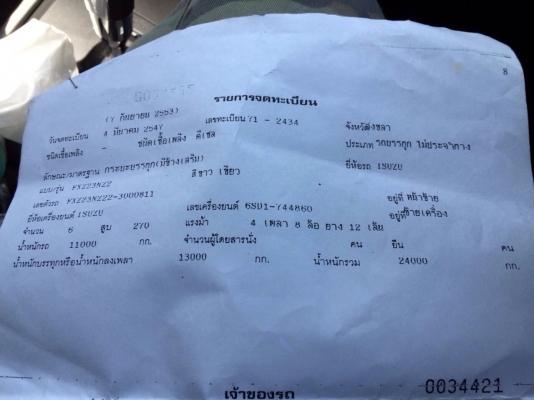 8
รายการจดทะเบียน
(7 กันยายน 2553)
วันจดทะเบียน 4 มีนาคม 2547 เลขทะเบียน 71 - 2434 จังหวัดสงขลา
ชนิดเชื้อเพลิง - ชนิดเชื้อเพลิง ดีเซล ประเภท รถบรรทุก ไม่ประจำทาง
ลักษณะ/มาตรฐาน กระบะบรรทุก(มีข้างเสริม) สี ขาว เขียว ยี่ห้อรถ ISUZU
แบบ/รุ่น FXZ23NZ2
เลขตัวรถ FXZ23NZ2-3000811 อยู่ที่ หน้าซ้าย
ยี่ห้อเครื่องยนต์ ISUZU เลขเครื่องยนต์ 6SD1-744860 อยู่ที่ซ้ายเครื่อง
จำนวน 6 สูบ 270 แรงม้า 4 เพลา 8 ล้อ ยาง 12 เส้น
น้ำหนักรถ 11000 กก. จำนวนผู้โดยสารนั่ง คน ยืน คน
น้ำหนักบรรทุกหรือน้ำหนักลงเพลา 13000 กก. น้ำหนักรวม 24000 กก.
เจ้าของรถ 0034421